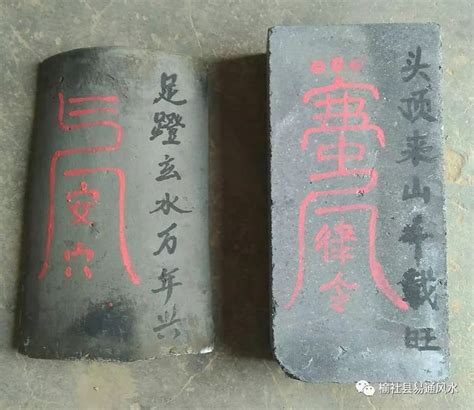 头顶来山千載旺
律令
足蹬玄水万年兴
安穴
榆社县易通风水